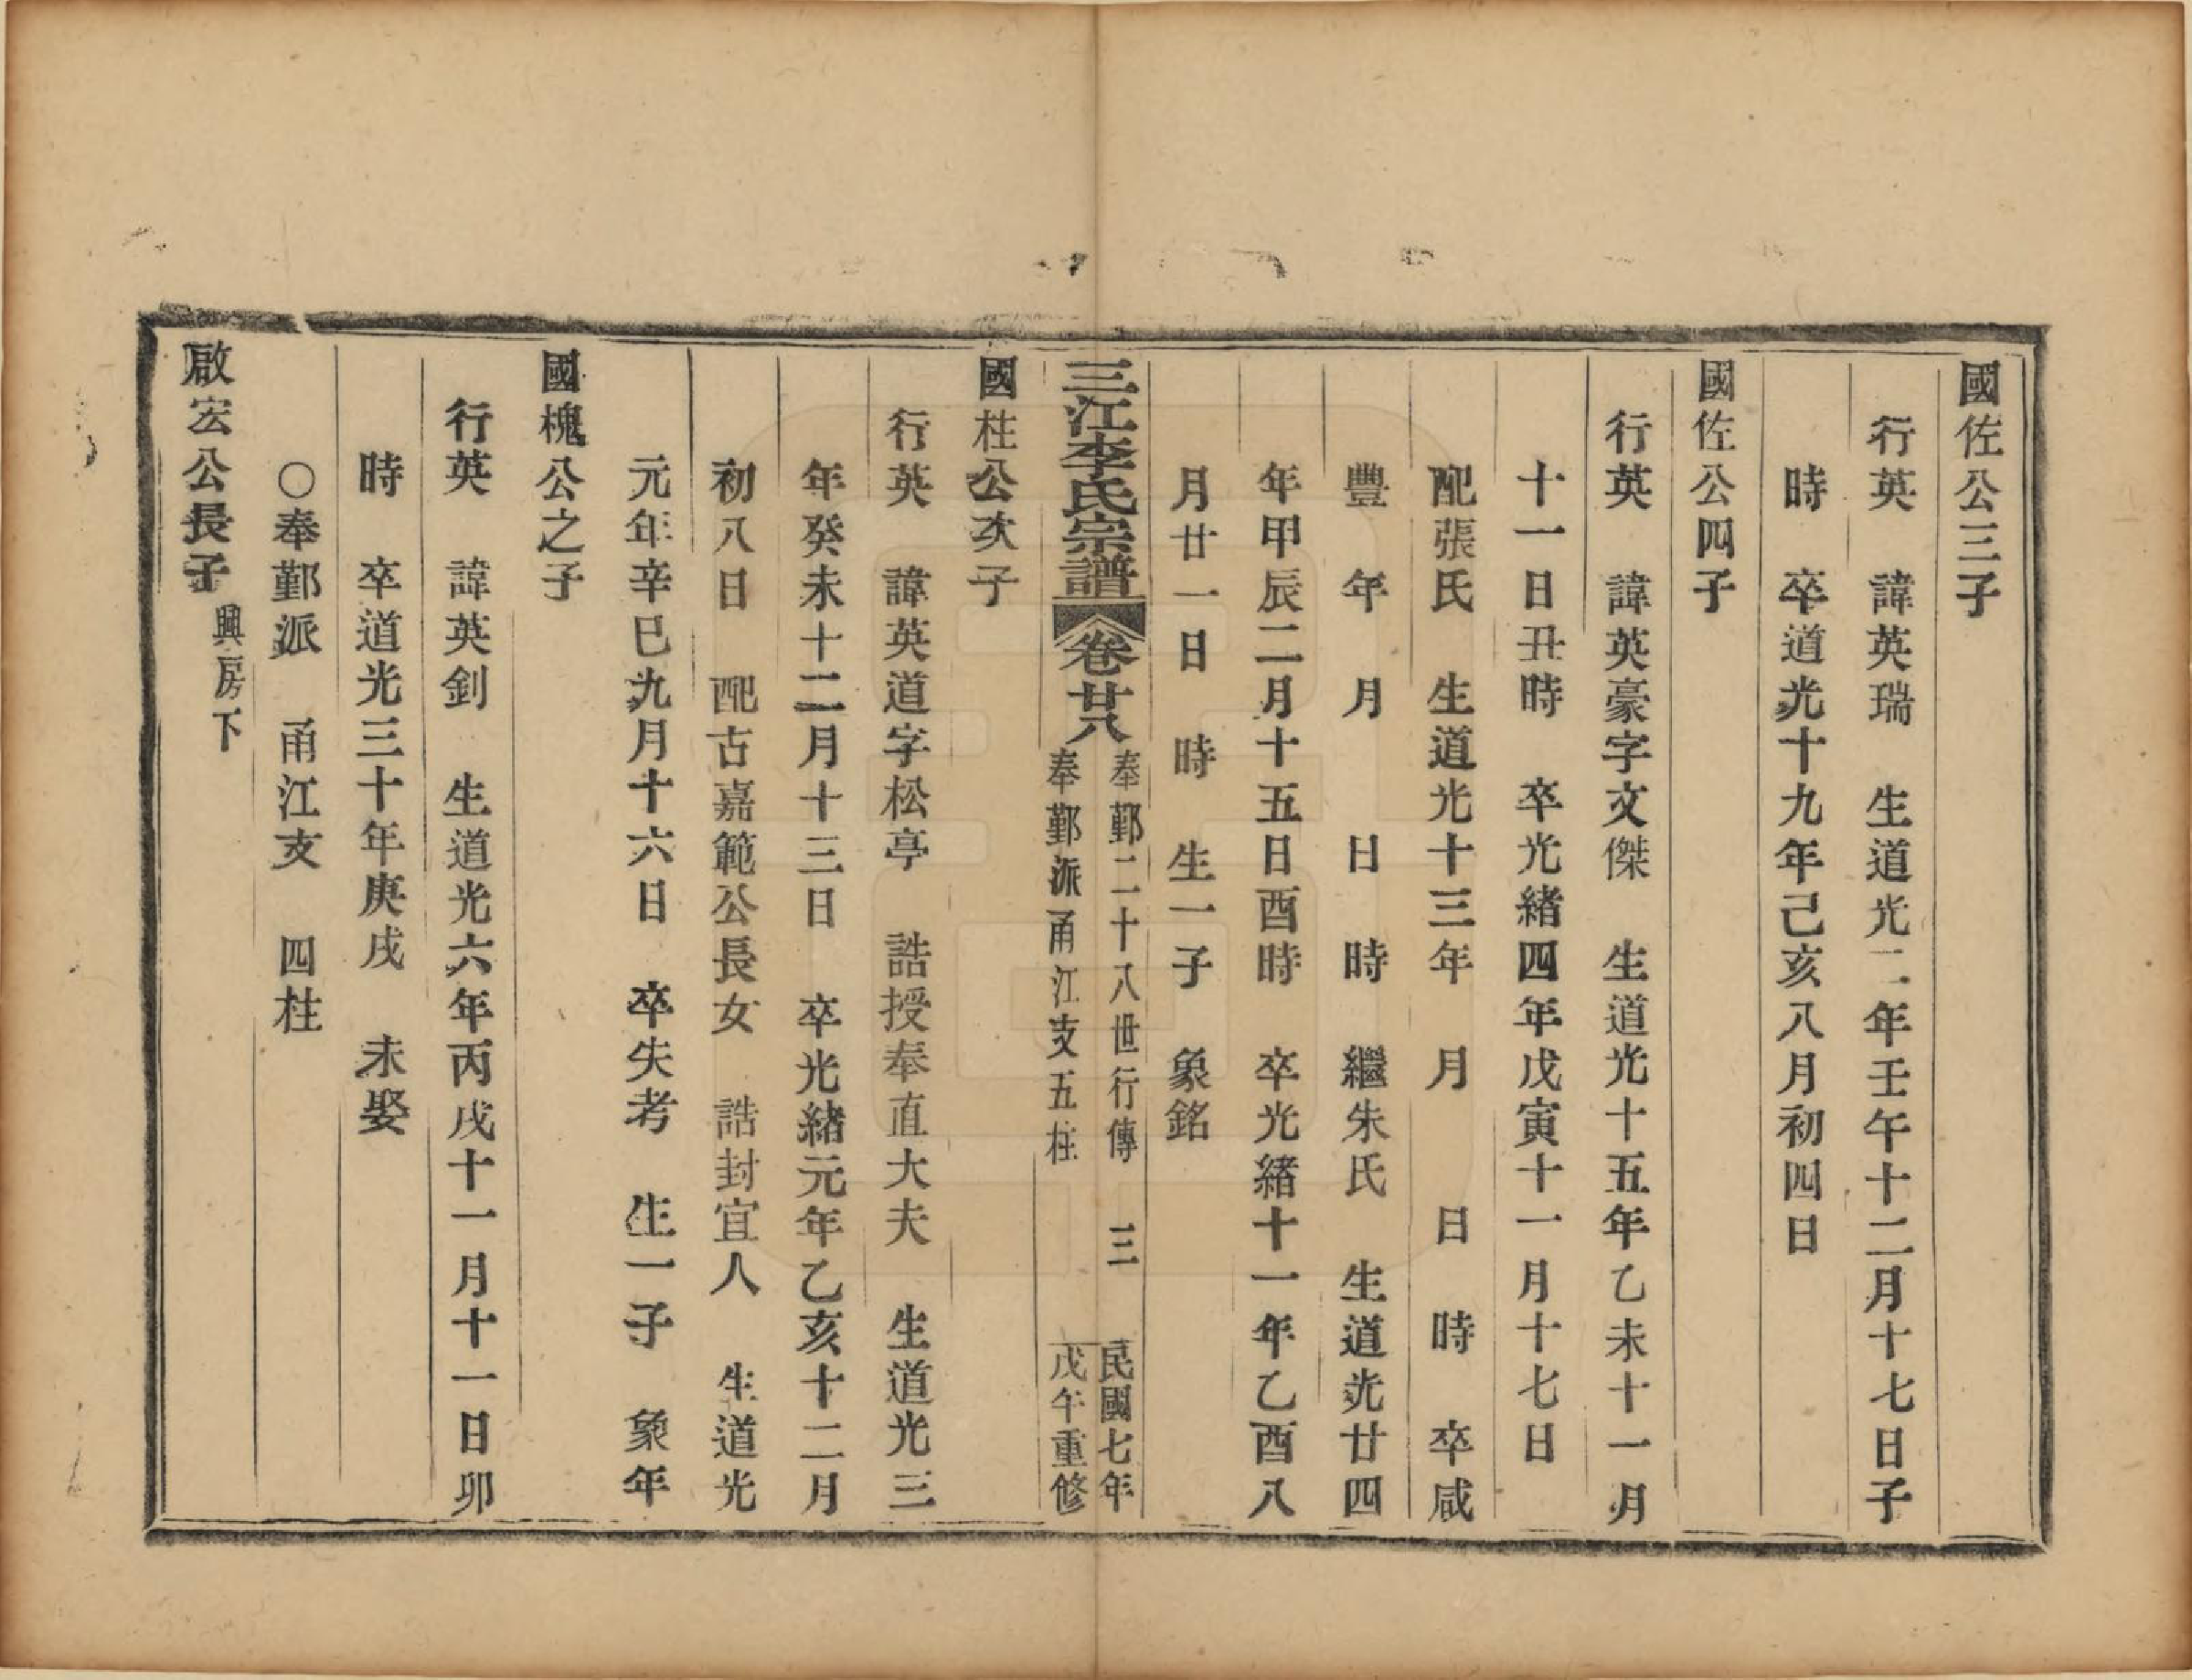 國佐公三子
行英　諱英瑞　生道光二年壬午十二月十七日子
時　卒道光十九年己亥八月初四日
國佐公四子
行英　諱英豪字文傑　生道光十五年乙未十一月
十一日丑時　卒光緒四年戊寅十一月十七日
配張氏　生道光十三年　月　　日　時　卒咸
豐　年　月　　日　時　繼朱氏　生道光廿四
年甲辰二月十五日酉時　卒光緒十一年乙酉八
月廿一日　時　生一子　象銘
三江李氏宗譜　卷廿八
奉鄞二十八世行傳　三
奉鄞派甬江支五柱
民國七年
戊午重修
國柱公次子
行英　諱英道字松亭　誥授奉直大夫　生道光三
年癸未十二月十三日　卒光緒元年乙亥十二月
初八日　配古嘉範公長女　誥封宜人　生道光
元年辛巳九月十六日　卒失考　生一子　象年
國槐公之子
行英　諱英釗　生道光六年丙戌十一月十一日卯
時　卒道光三十年庚戌　未娶
○奉鄞派　甬江支　四柱
啟宏公長子　興房下